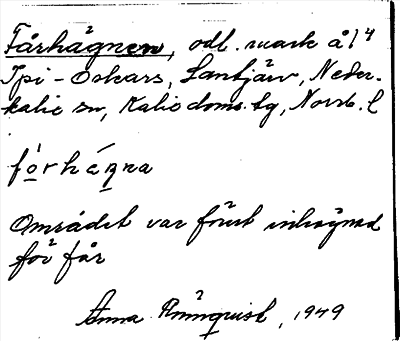 Fårhägnen, odl. mark å 1⁴
Ipi-Oskars, Santjärv, Neder-
kalix sn, Kalix doms. tg, Norrb. l
fo̱rhä́gna
Området var förut inhägnad
för får
Anna Rönnquist, 1949